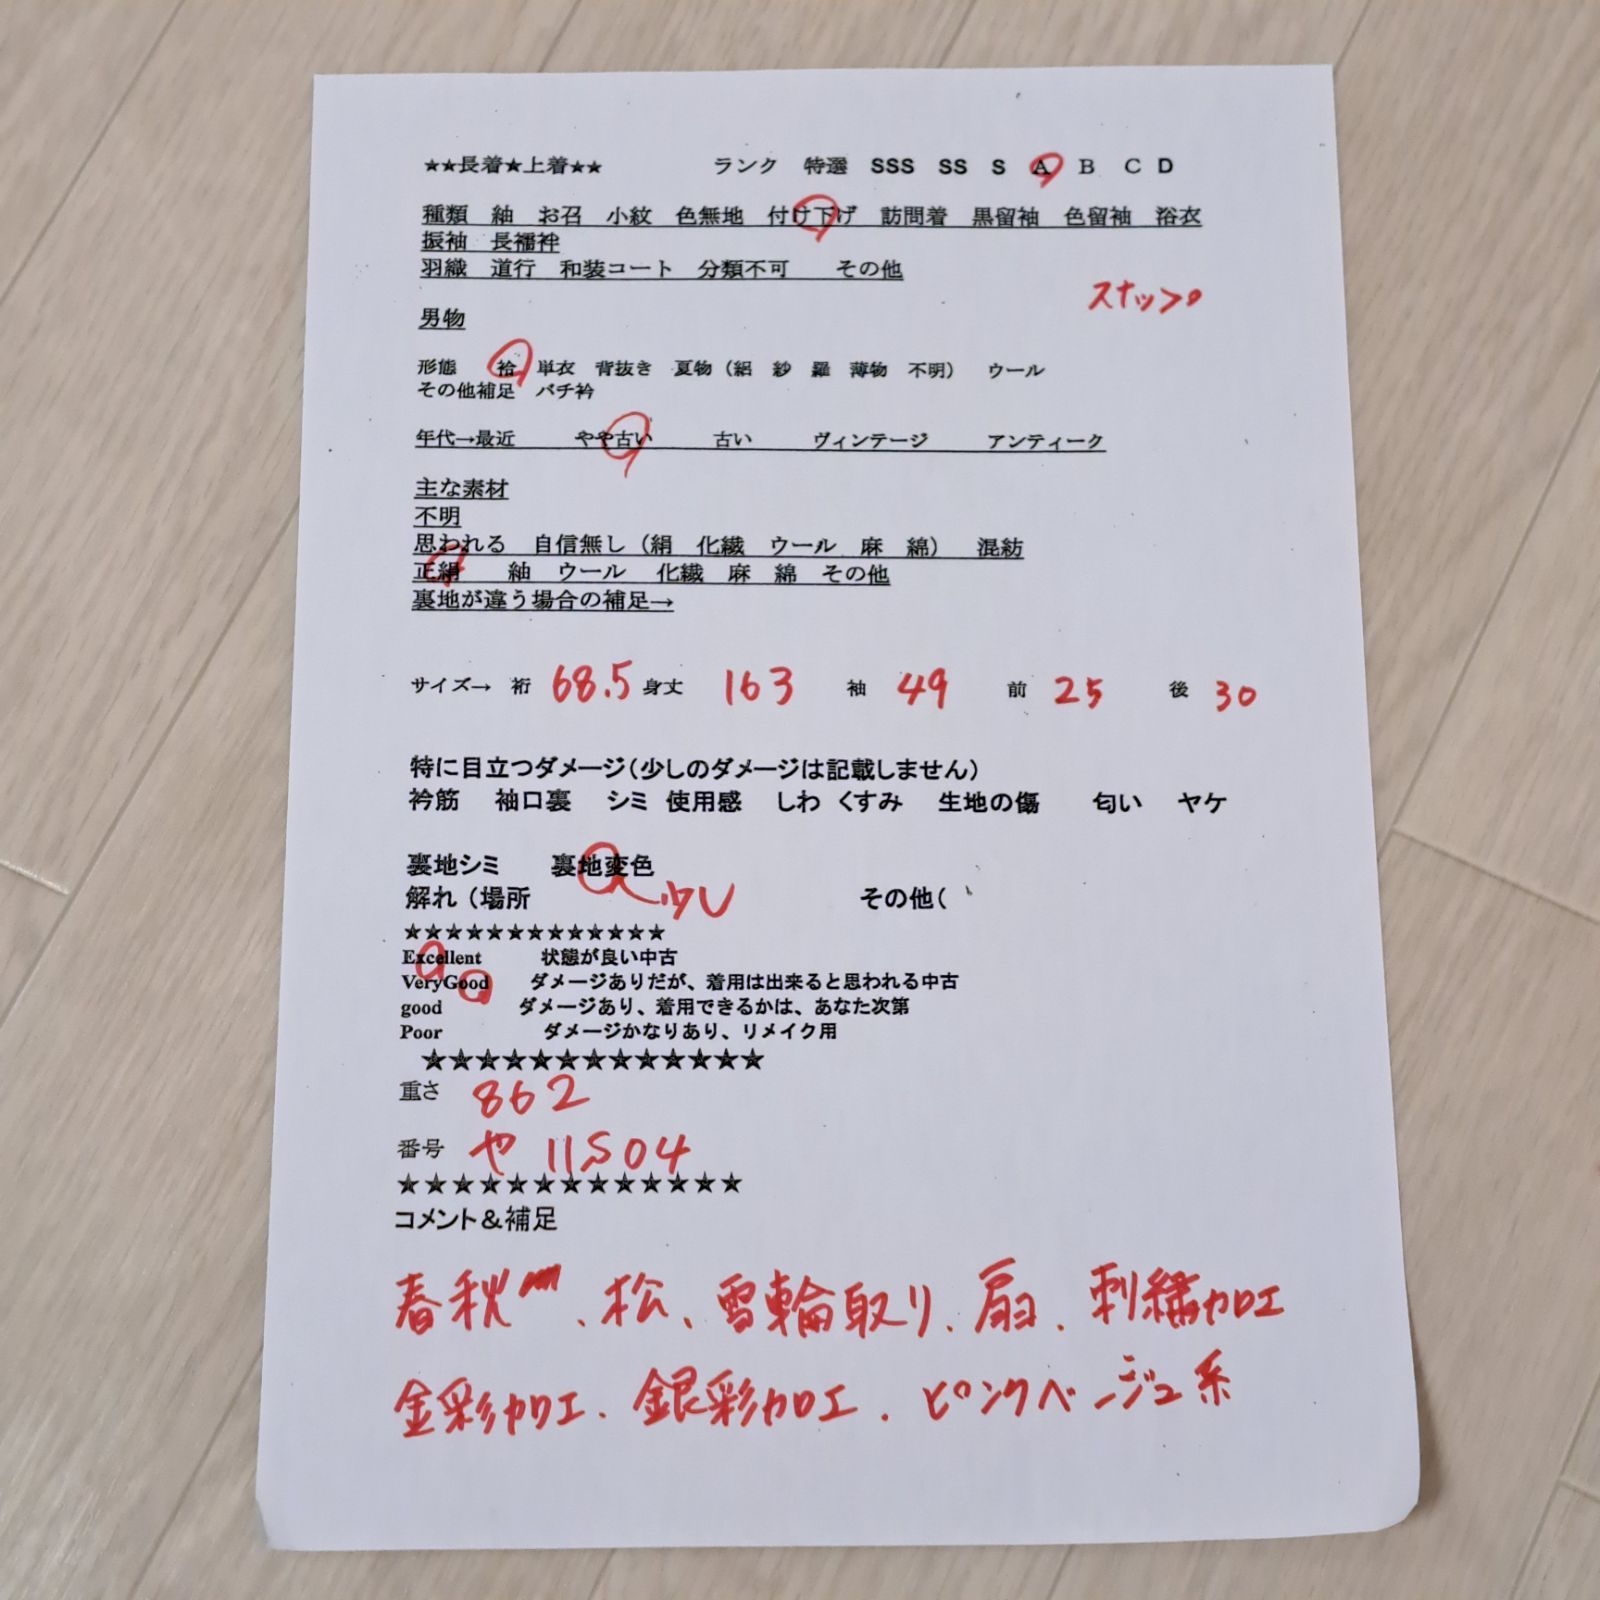 ★★長着★上着★★ ランク 特選 SSS SS S A B C D
種類 紬 お召 小紋 色無地 付け下げ 訪問着 黒留袖 色留袖 浴衣
振袖 長襦袢
羽織 道行 和装コート 分類不可 その他
スナップ
男物
形態 袷 単衣 背抜き 夏物（絽 紗 羅 薄物 不明） ウール
その他補足 バチ衿
年代→最近 やや古い 古い ヴィンテージ アンティーク
主な素材
不明
思われる 自信無し（絹 化繊 ウール 麻 綿） 混紡
正絹 紬 ウール 化繊 麻 綿 その他
裏地が違う場合の補足→
サイズ→ 裄 68.5 身丈 163 袖 49 前 25 後 30
特に目立つダメージ（少しのダメージは記載しません）
衿筋 袖口裏 シミ 使用感 しわ くすみ 生地の傷 匂い ヤケ
裏地シミ 裏地変色
解れ（場所 少し その他（
★★★★★★★★★★★★★
Excellent 状態が良い中古
VeryGood ダメージありだが、着用は出来ると思われる中古
good ダメージあり、着用できるかは、あなた次第
Poor ダメージかなりあり、リメイク用
★★★★★★★★★★★★★
重さ 862
番号 や 11504
★★★★★★★★★★★★★
コメント＆補足
春秋、松、雪輪取り、扇、刺繍加工
金彩加工、銀彩加工、ピンクベージュ系